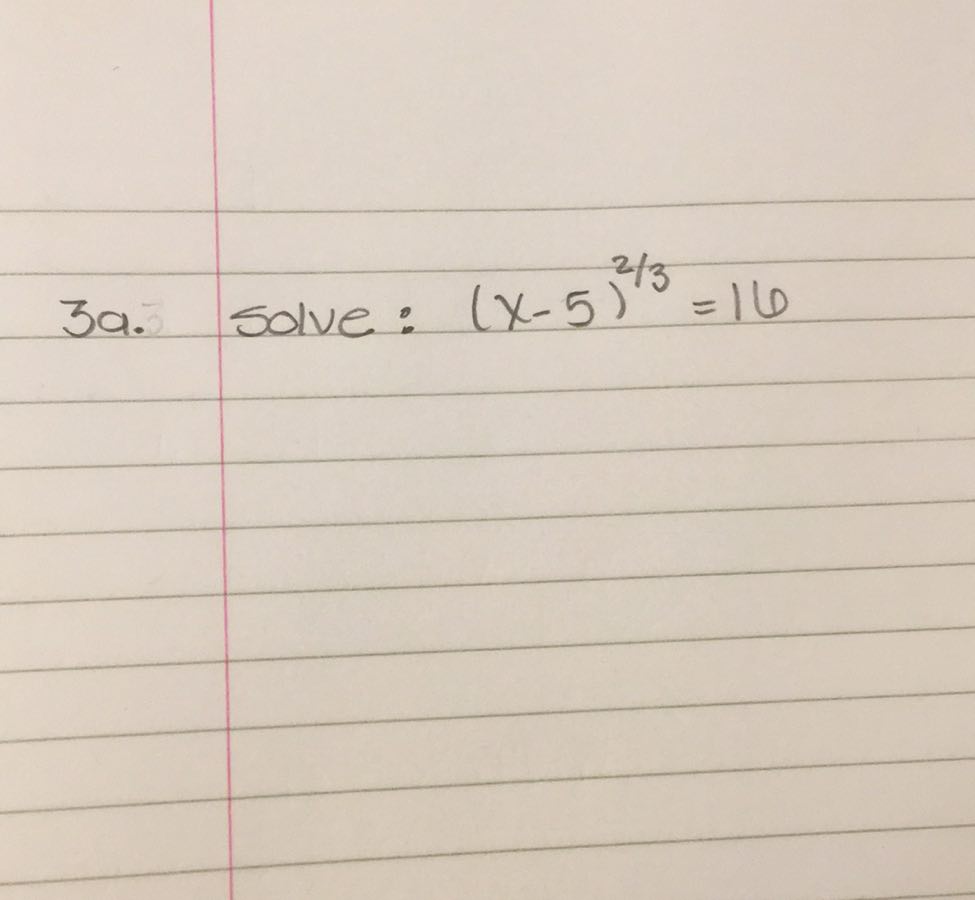 3a. Solve: (x-5)^2/3 = 16